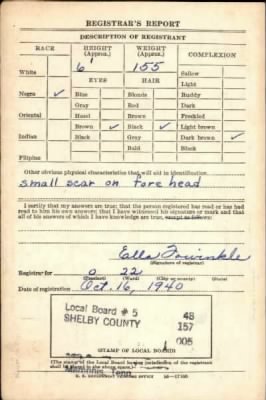 REGISTRAR'S REPORT
DESCRIPTION OF REGISTRANT
RACE HEIGHT (Approx.) WEIGHT (Approx.) COMPLEXION
6' 155
White EYES HAIR Sallow
Light
Negro ✓ Blue Blonde Ruddy
Gray Red Dark
Oriental Hazel Brown Freckled
Brown ✓ Black ✓ Light brown
Indian Black Gray Dark brown ✓
Bald Black
Filipino
Other obvious physical characteristics that will aid in identification
small scar on fore head
I certify that my answers are true; that the person registered has read or has
had read to him his own answers; that I have witnessed his signature or mark and that
all of his answers of which I have knowledge are true, except as follows:
Ella
(Signature of registrar)
Registrar for 0 22
(Precinct) (Ward) (City or county) (State)
Date of registration Oct. 16, 1940
Local Board # 5 48
SHELBY COUNTY 157
005
STAMP OF LOCAL BOARD
(The stamp of the Local Board having jurisdiction of the registrant
shall be placed in the above space.)
Memphis, Tenn.